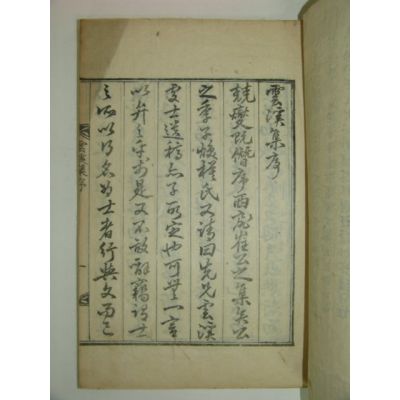 雲溪集序
兢燮既僭序西崔公之集矣公
之季子氏又請曰先兄雲溪
處士遺稿亦子所定也可無一言
以弁之乎於是又不敢辭竊謂士
之所以得名為士者行與文而已
雲溪集序
一